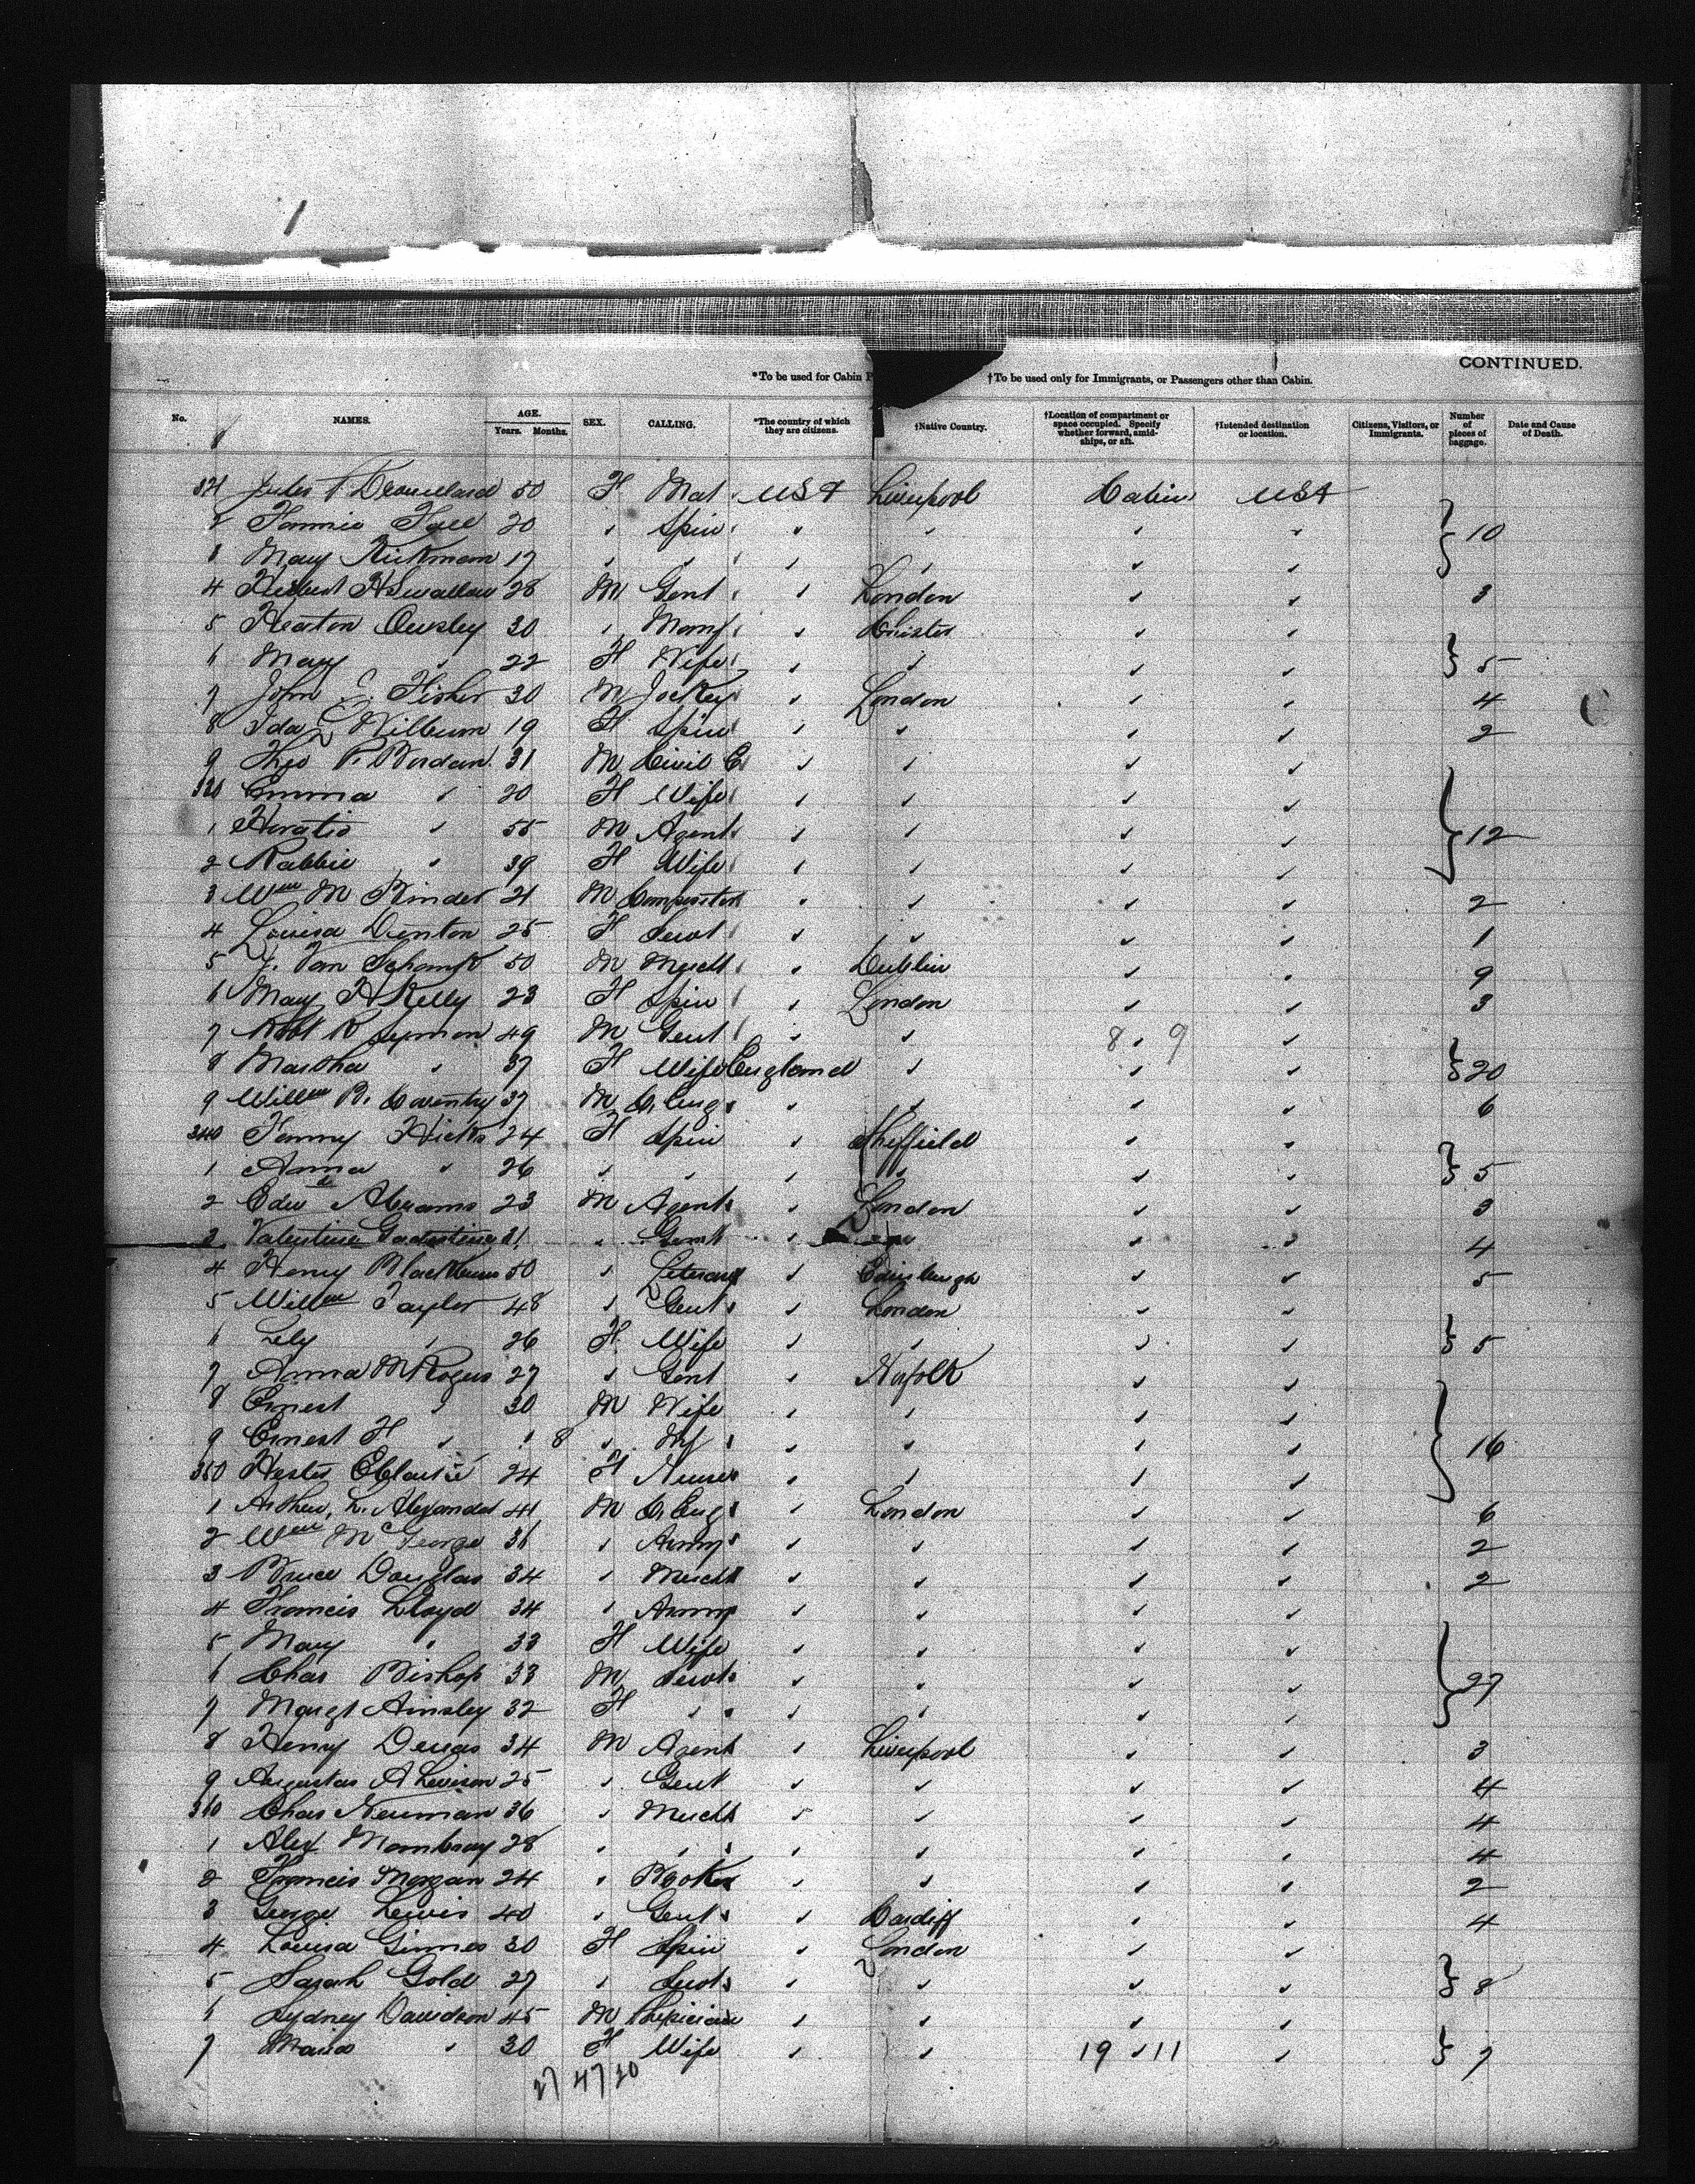 CONTINUED.
*To be used for Cabin P
†To be used only for Immigrants, or Passengers other than Cabin.
No. NAMES. AGE. Years. Months. SEX. CALLING. *The country of which they are citizens. †Native Country. †Location of compartment or space occupied. Specify whether forward, amidships, or aft. †Intended destination or location. Citizens, Visitors, or Immigrants. Number of pieces of baggage. Date and Cause of Death.
321 Jules 50 F Mat USA Liverpool Cabin USA
2 Fannie 20 " Spin " " " "
10
3 May Rickman 17 " " " " " "
4 Herbert H Swallow 28 M Gent " London " " 3
5 Heaton Ousley 30 " Manf " " "
6 Mary " 22 F Wife " " " " 5
7 John E. Fisher 30 M Jockey " London " " 4
8 Ida Wilburn 19 F Spin " " " " 2
9 Theo P. Bordan 31 M Civil E " " " "
330 Emma " 20 F Wife " " " "
1 Horatio " 55 M Agent " " " " 12
2 Rabbie " 39 F Wife " " " "
3 Wm M Binder 21 M Compositor " " " " 2
4 Louisa Denton 25 F Servt " " " " 1
5 J. Van Schaick 50 M Mercht " Dublin " " 9
6 May H Kelly 23 F Spin " London " " 3
7 Robt R Symon 49 M Gent " " 8 " 9 "
8 Martha " 37 F Wife England " " " 20
9 Willm B. Coventry 37 M C. Eng " " " " 6
340 Fanny Hicks 24 F Spin " Sheffield " "
1 Anna " 26 " " " " " " 5
2 Edwd Abrams 23 M Agent " London " " 3
3 Valentine 31 " Gent " " " 4
4 Henry Blackburn 50 " Literary " Edinburgh " " 5
5 Willm Taylor 48 " Gent " London " "
6 Lily " 26 F Wife " " " " 5
7 Anna M Rogers 27 " Gent " Norfolk " "
8 Ernest " 30 M Wife " " " "
9 Ernest H " " 8 " Inf " " " " 16
350 Hester E Clarke 24 F Nurse " " " "
1 Arthur L. Alexander 41 M C. Eng " London " " 6
2 Wm McGeorge 36 " Army " " " " 2
3 Bruce Douglas 34 " Mercht " " " " 2
4 Francis Lloyd 34 " Army " " " "
5 Mary " 33 F Wife " " " "
6 Chas Bishop 33 M Servt " " " " 27
7 Margt Ainsley 32 F " " " " "
8 Henry 34 M Agent " Liverpool " " 3
9 Augustus A Levison 25 " Gent " " " " 4
360 Chas Neuman 36 " Mercht " " " " 4
1 Alex 28 " " " " " " 4
2 Francis Morgan 24 " " " " " 2
3 George Lewis 40 " Gent " Cardiff " " 4
4 Louisa 30 F Spin " London " "
5 Sarah Gold 27 " Servt " " " " 8
6 Sydney Davidson 45 M Physician " " " "
7 " 30 F Wife " " 19 " 11 " 7
27 47 20